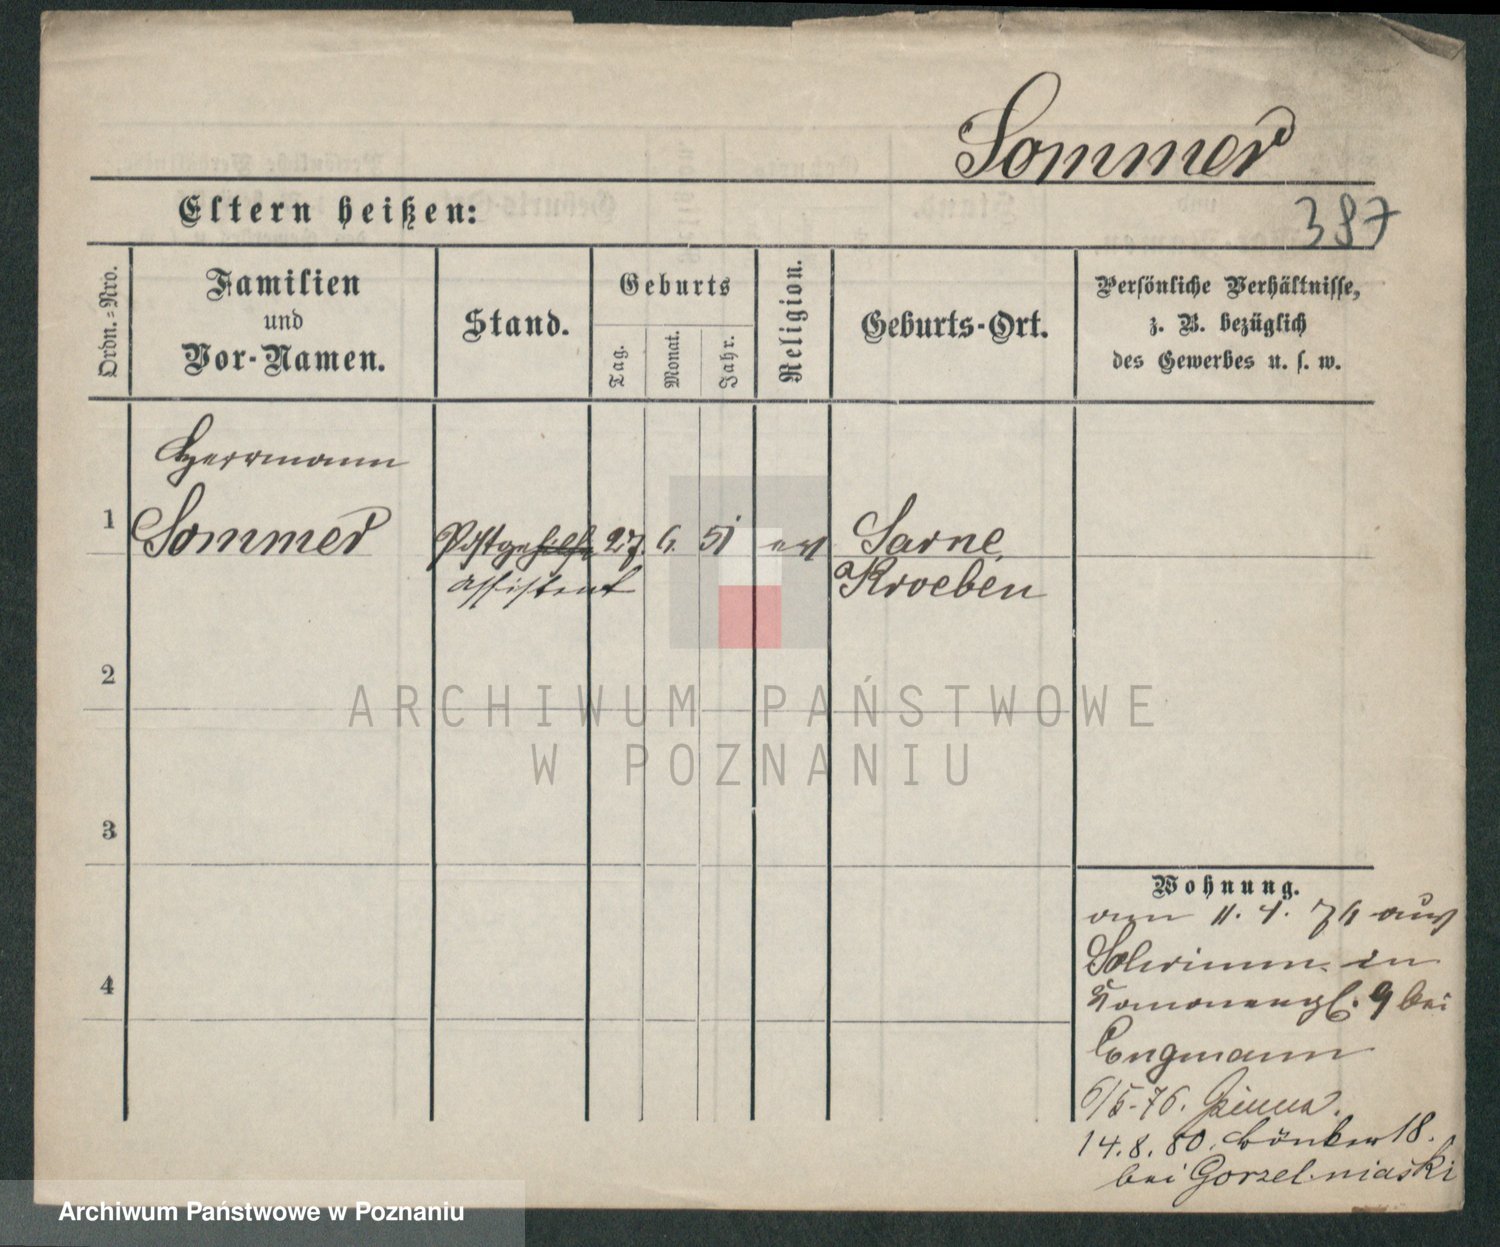 Sommer
Eltern heißen:
387
Ordn.-Nro.
Familien
und
Vor-Namen.
Stand.
Geburts
Tag.
Monat.
Jahr.
Religion.
Geburts-Ort.
Persönliche Verhältnisse,
z. B. bezüglich
des Gewerbes u. s. w.
Herrmann
1 Sommer Postgehilfe 27. 6. 51 ev Sarne
assistent Kroeben
2
3
4
Wohnung.
am 11. 4. 76 aus
Schrimm in
9 bei
Engmann
6/5-76.
14.8.80. 18.
bei Gorzelniaski
ARCHIWUM PAŃSTWOWE
W POZNANIU
Archiwum Państwowe w Poznaniu